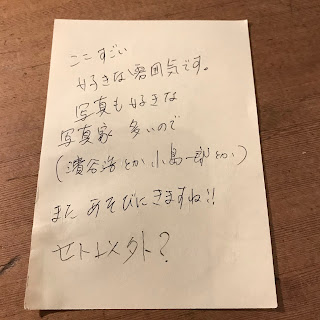 ここすごい
好きな雰囲気です。
写真も好きな
写真家 多いので
(濱谷浩とか 小島一郎とか)
また あそびにきますね!!